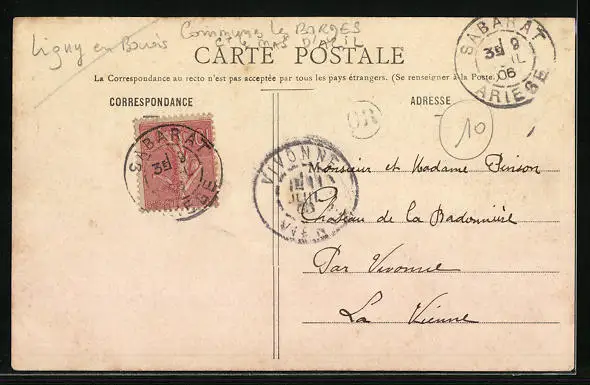 Ligny en
Communes les BORGES
et le MAS D'AZIL
CARTE POSTALE
La Correspondance au recto n'est pas acceptée par tous les pays étrangers. (Se renseigner à la Poste.)
CORRESPONDANCE
ADRESSE
SABARAT
3E 9
06
ARIEGE
OR
10
SABARAT
3E
VIVONNE
JUIL
VIENNE
Monsieur et Madame Pinson
Château de la Badonnière
Par Vivonne
La Vienne